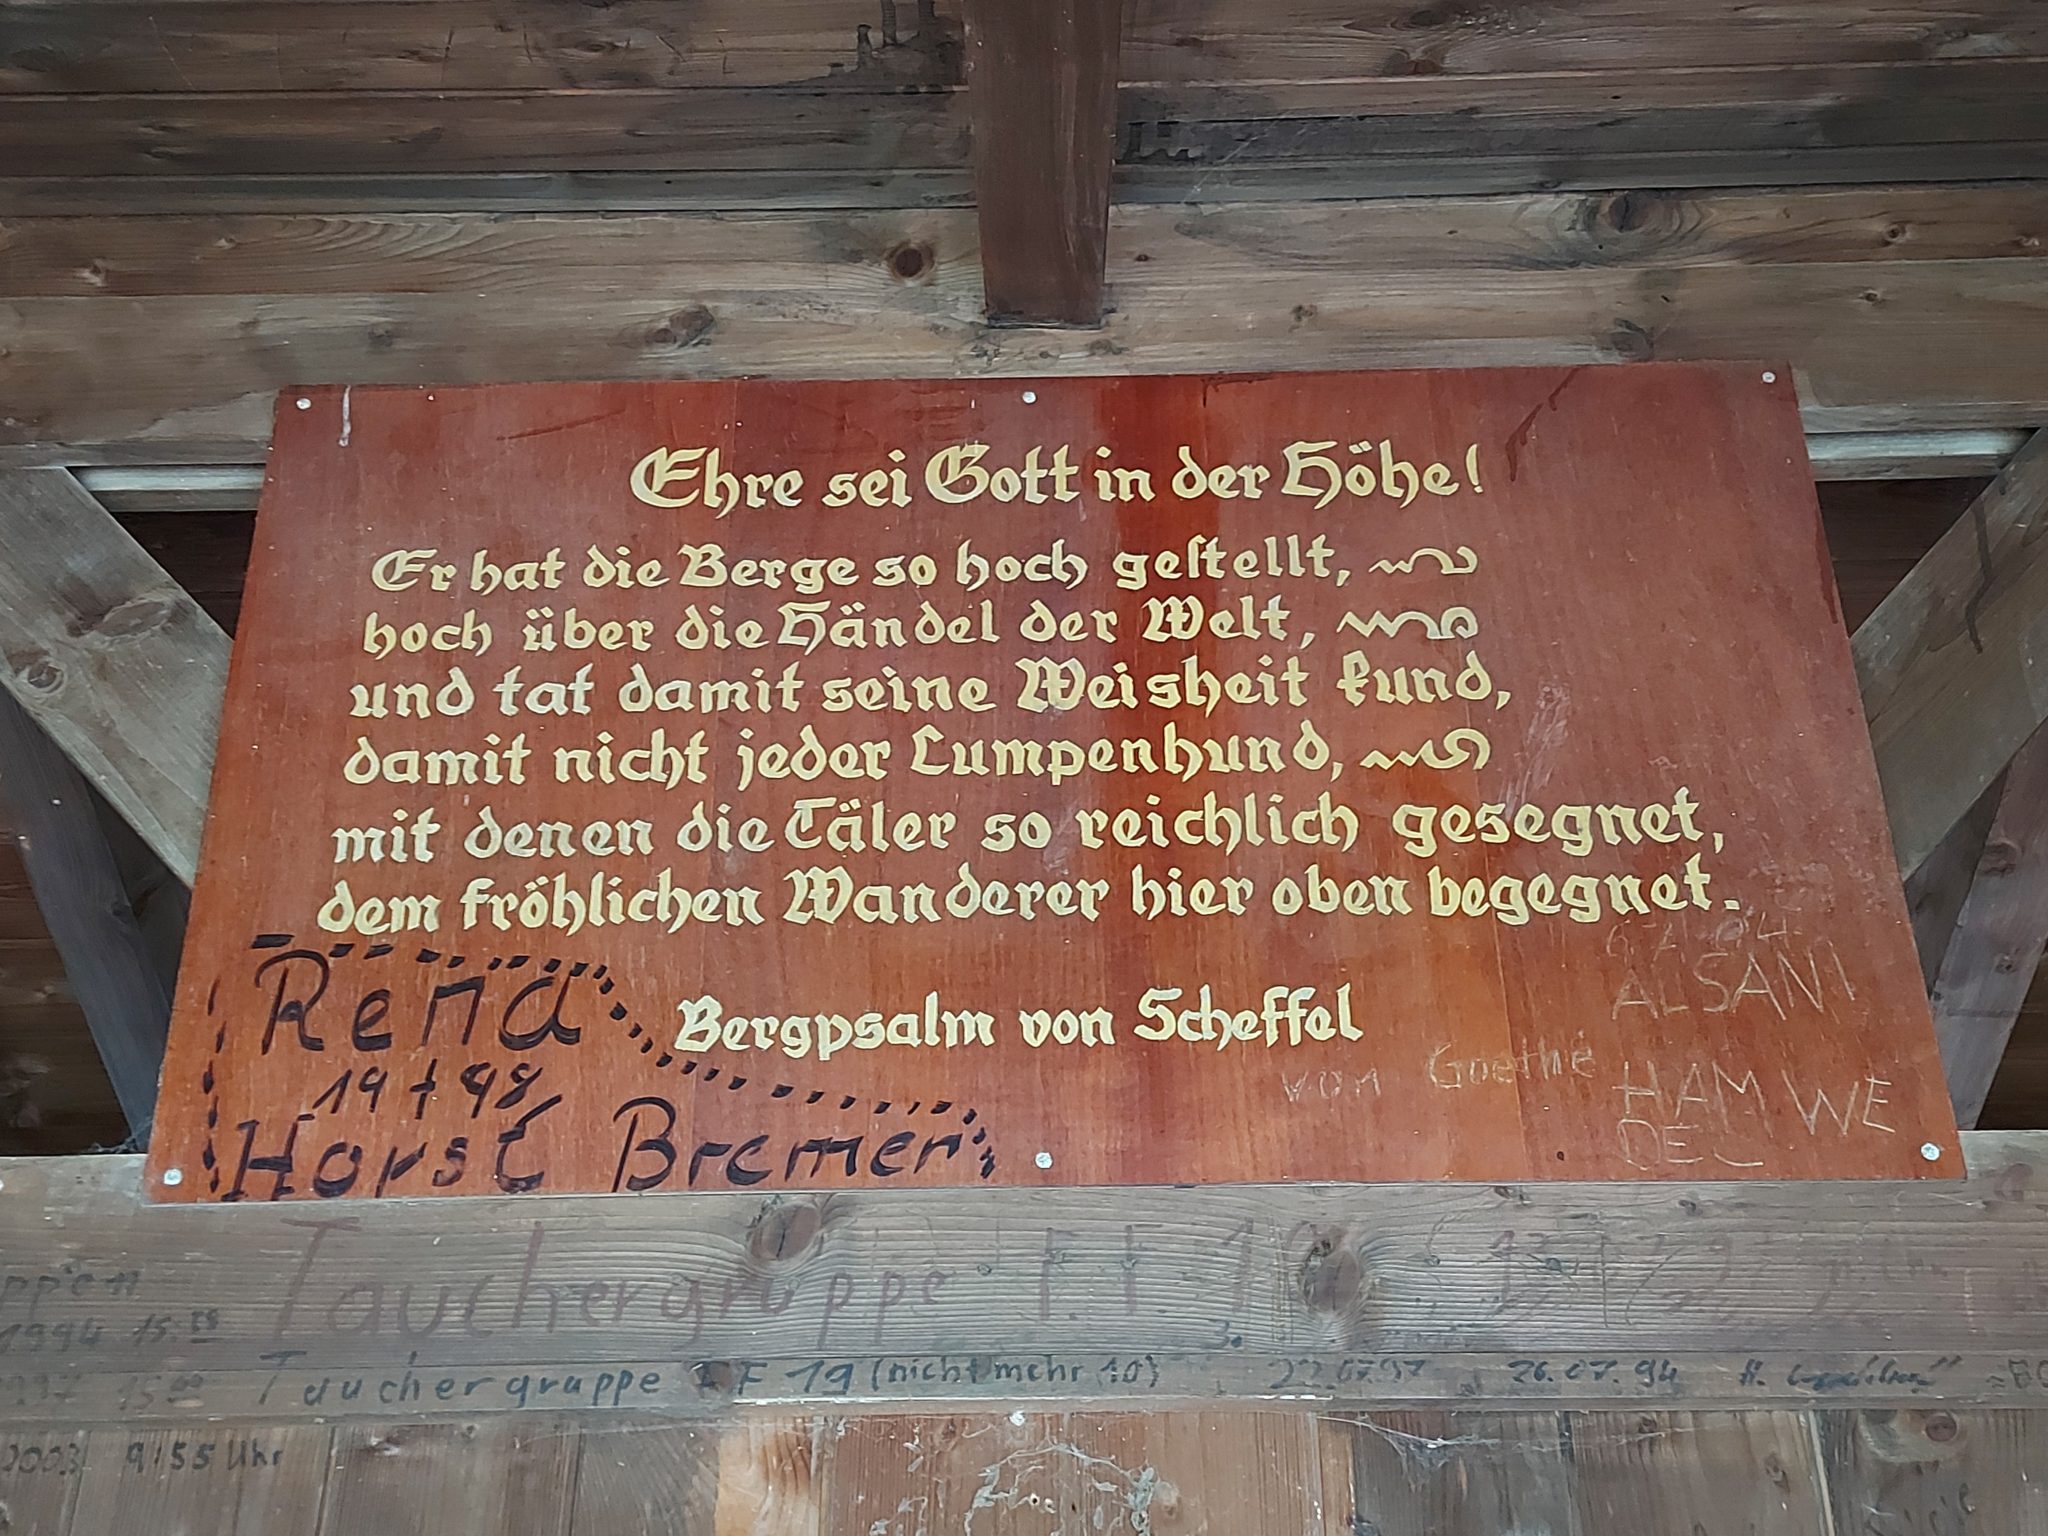 Ehre sei Gott in der Höhe!
Er hat die Berge so hoch geſtellt,
hoch über die Händel der Welt,
und tat damit seine Weisheit kund,
damit nicht jeder Lumpenhund,
mit denen die Täler so reichlich gesegnet,
dem fröhlichen Wanderer hier oben begegnet.
Bergpsalm von Scheffel
Rena
19 + 98
Horst Bremer
von Goethe
ALSANI
HAMWE
DEL
Tauchergruppe F.F 19
1994 15.
Tauchergruppe FF 19 (nicht mehr 10) 22.07.97 26.07.94
2003 9:55 Uhr